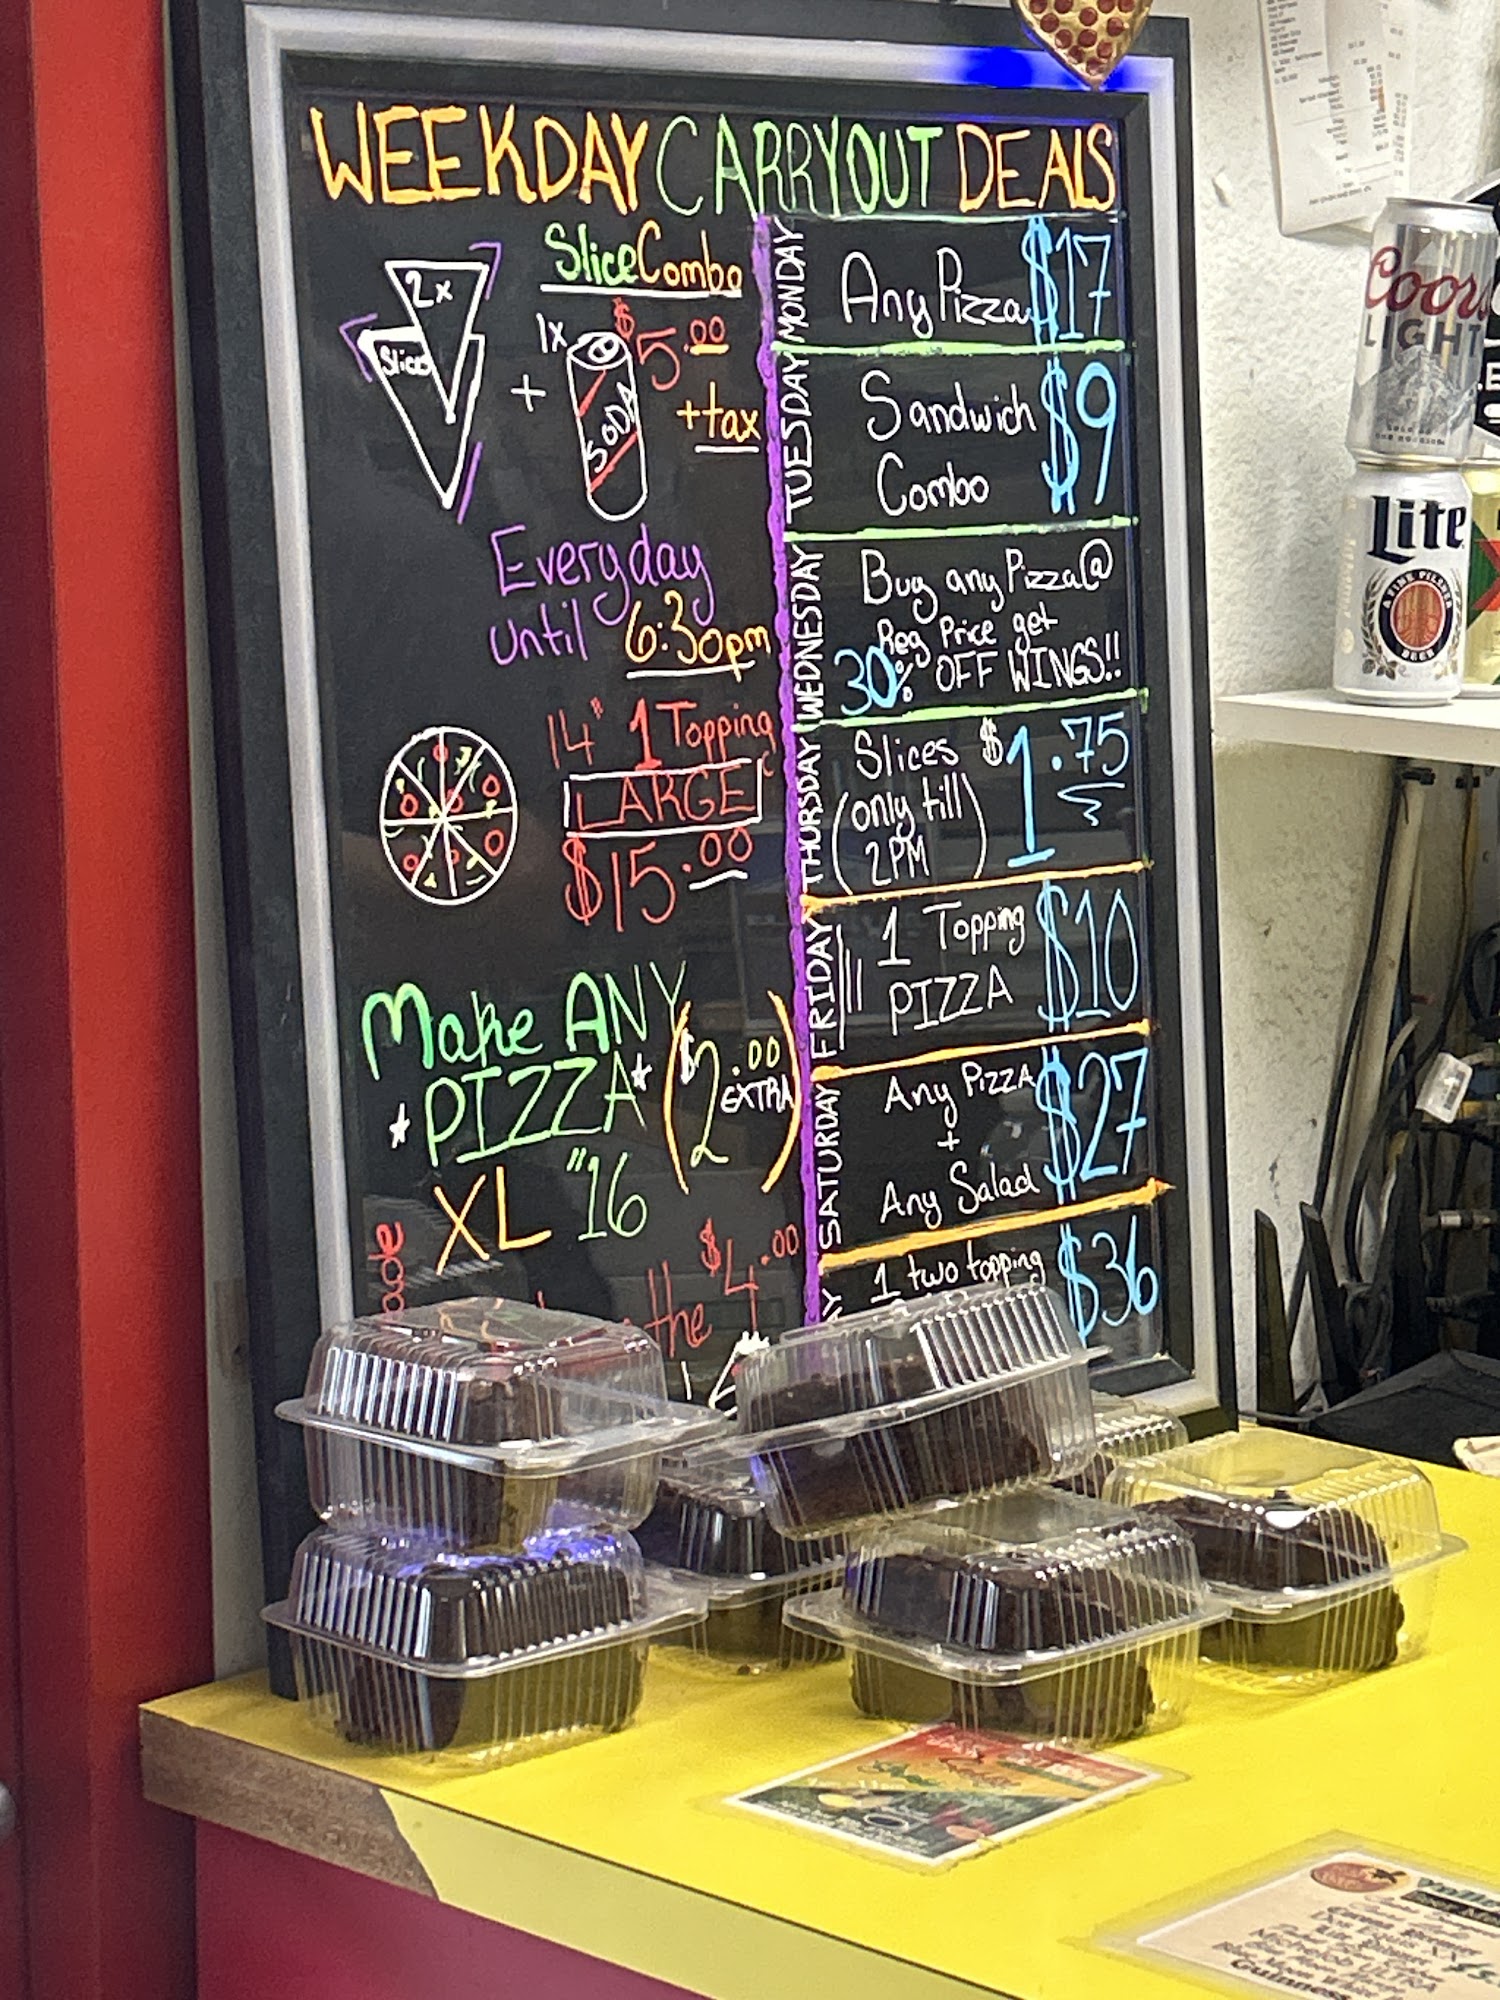 WEEKDAY CARRYOUT DEALS
SliceCombo
2x
Slice
+
1x
SODA
$5.00
+tax
Everyday
until 6:30pm
14" 1 Topping
LARGE
$15.00
Make ANY
PIZZA
($2.00
EXTRA)
XL "16
the $4.00
MONDAY
Any Pizza $17
TUESDAY
Sandwich
Combo
$9
WEDNESDAY
Buy any Pizza@
Reg Price get
30% OFF WINGS!!
THURSDAY
Slices $1.75
(only till
2PM)
FRIDAY
1 Topping
PIZZA
$10
SATURDAY
Any Pizza
+
Any Salad
$27
1 two topping
$36
Coors
LIGHT
Lite
A FINE PILSNER
BEER
ULTRA
Guinness